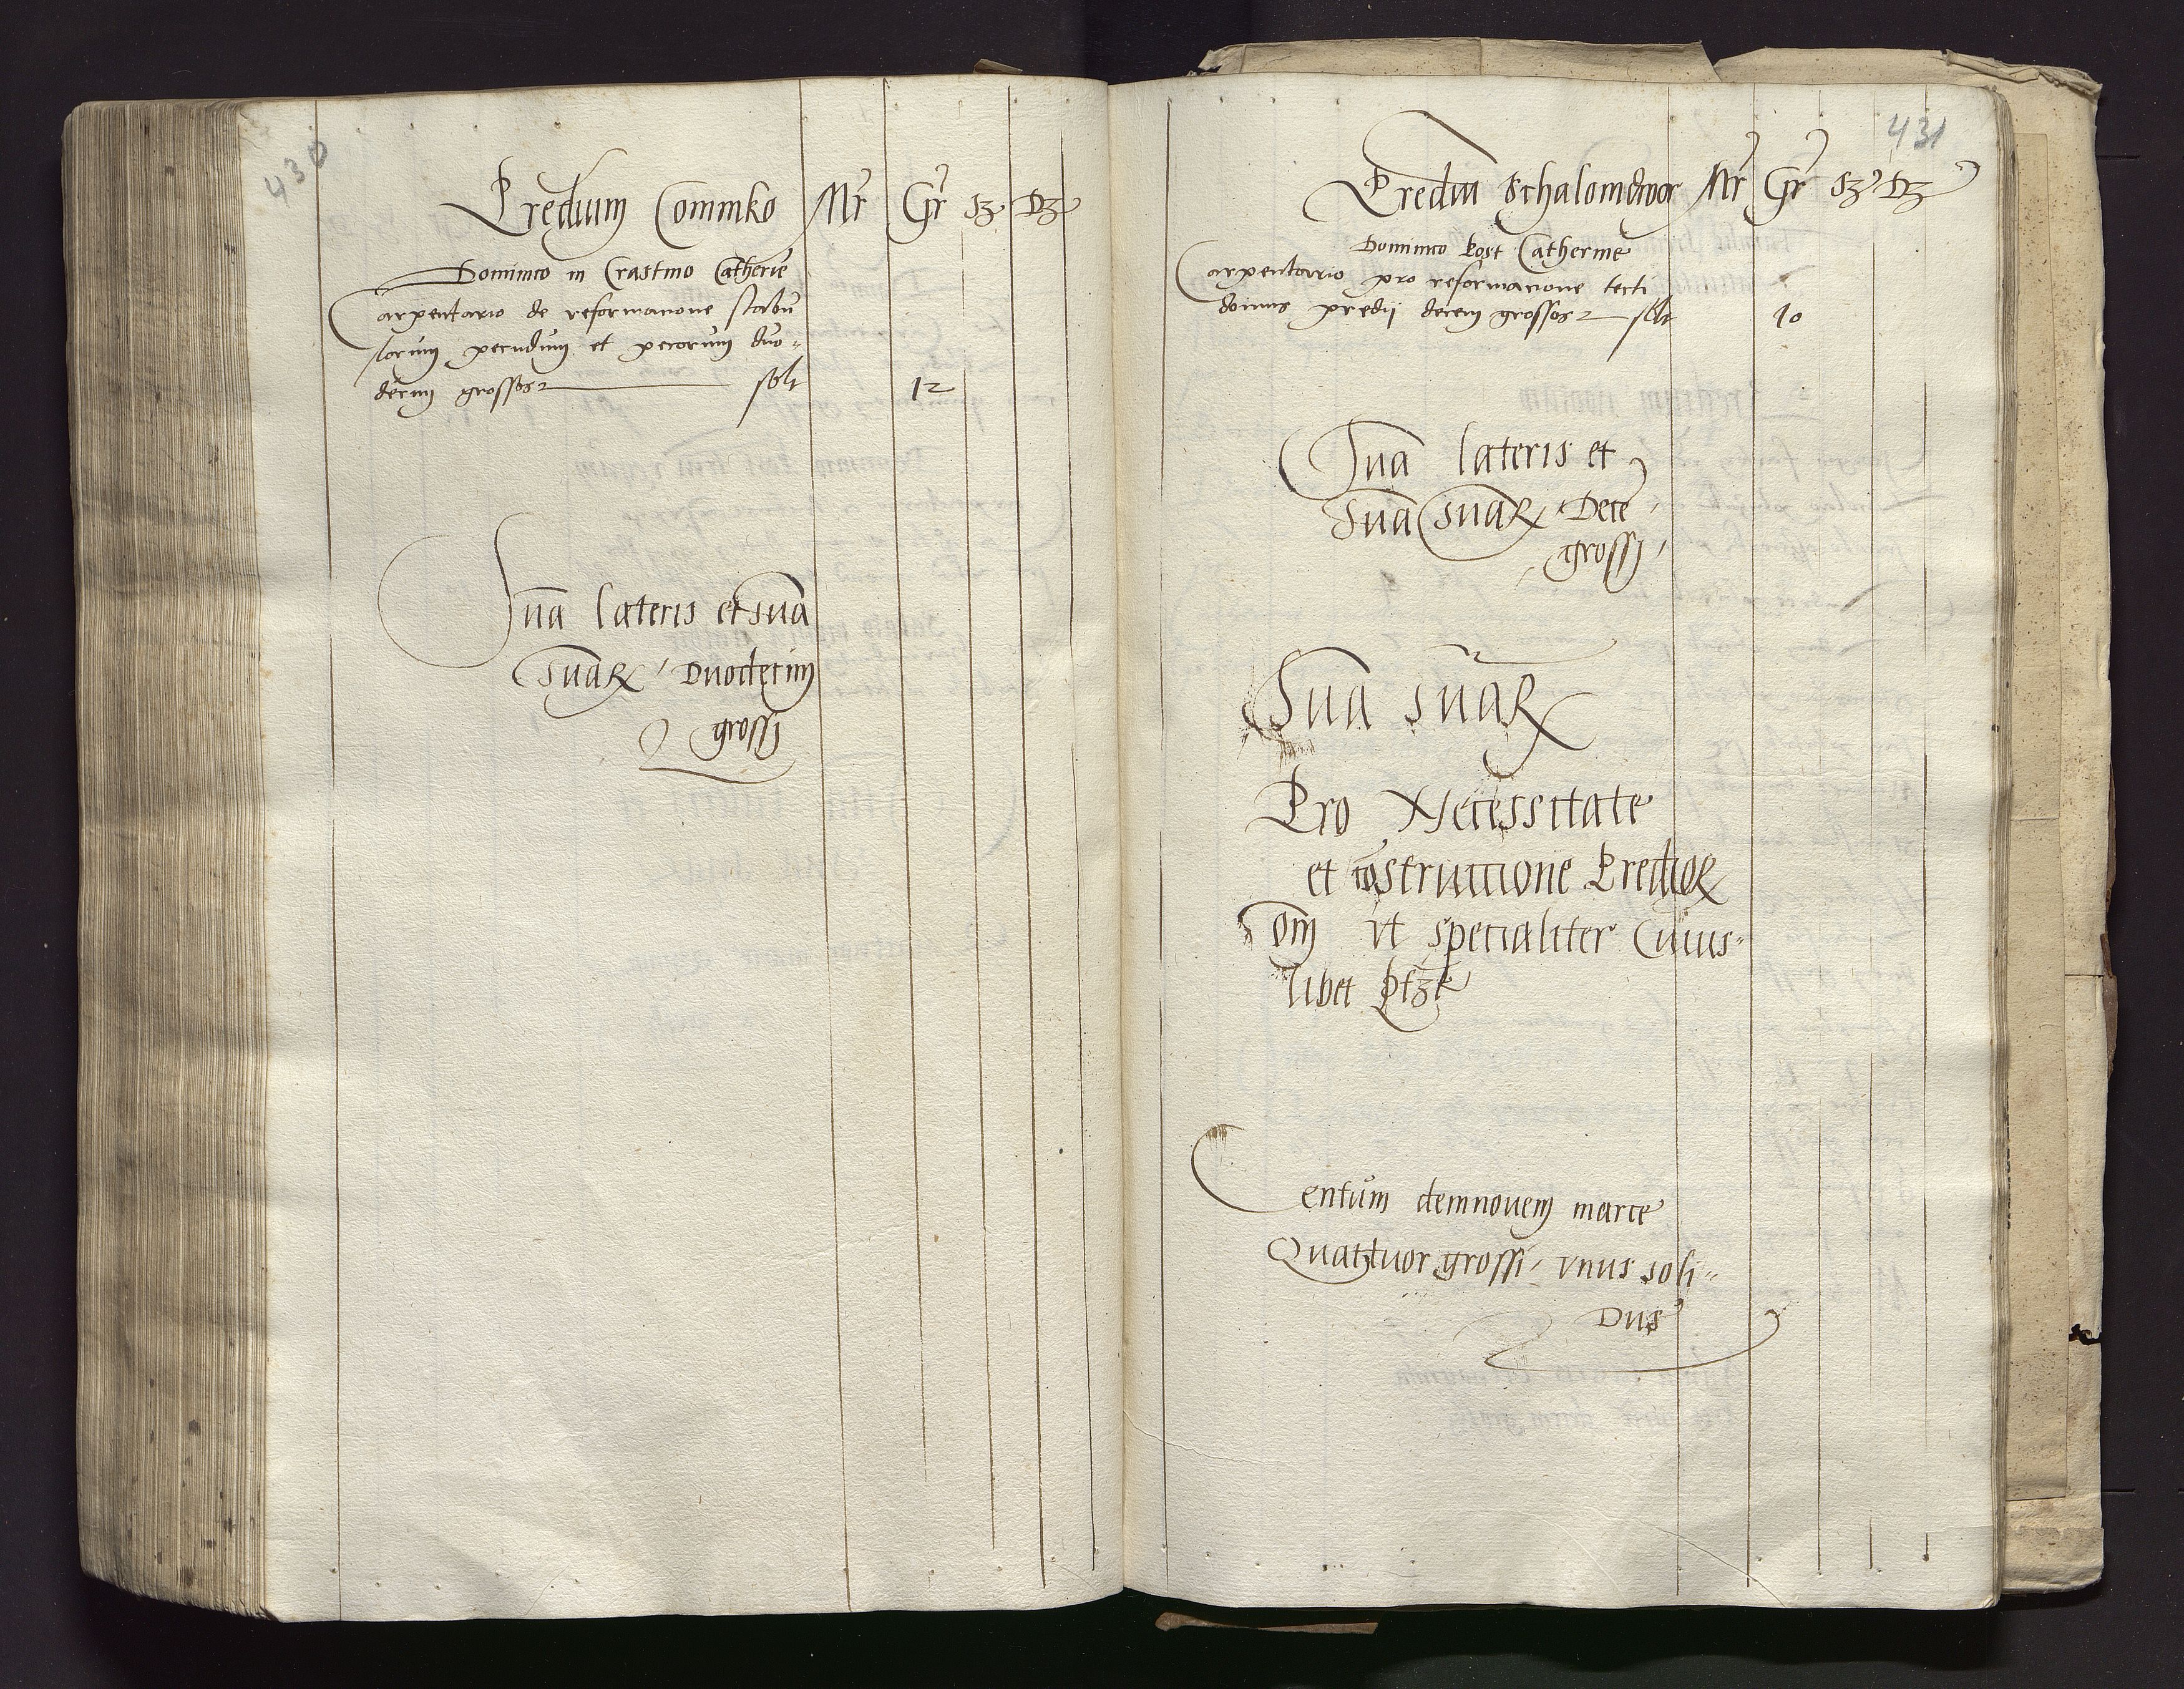 430
Predium Comnko Mr Gr Sz Dz
Dominico in Crastino Catherie
Carpentario de reformacione stabu
lorum pecudum et pecorum duo-
decim grossos solt 12
Sūa lateris et sūa
sūaꝝ Duodecim
grossj
431
Prediū Schalomdwor Mr Gr Sz Dz
Dominico post Catherine
Carpentario pro reformacione tecti
domus predij decem grossos solt 10
Sūa lateris et
sūa sūaꝝ Decē
grossj
Sūa sūaꝝ
Pro Necessitate
et cōstructione Predioꝝ
om̄ vt specialiter Cuius-
libet
Centum decmnouem marce
Quattuor grossi vnus soli-
dus